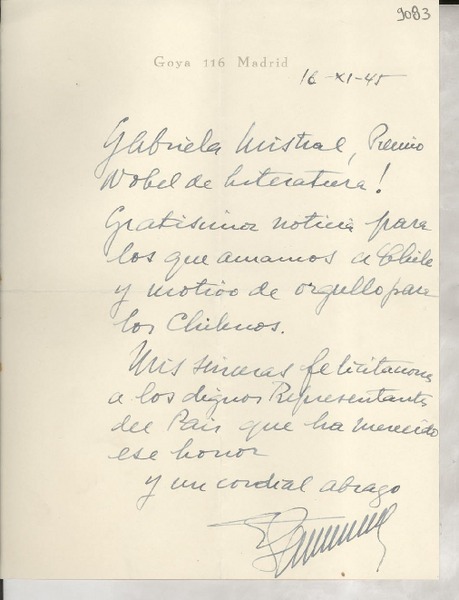 9083
Goya 116 Madrid
16-XI-45
Gabriela Mistral, Premio
Nobel de Literatura!
Gratisima noticia para
los que amamos a Chile
y motivo de orgullo para
los Chilenos.
Mis sinceras felicitaciones
a los dignos Representantes
del Pais que ha merecido
ese honor
y un cordial abrazo